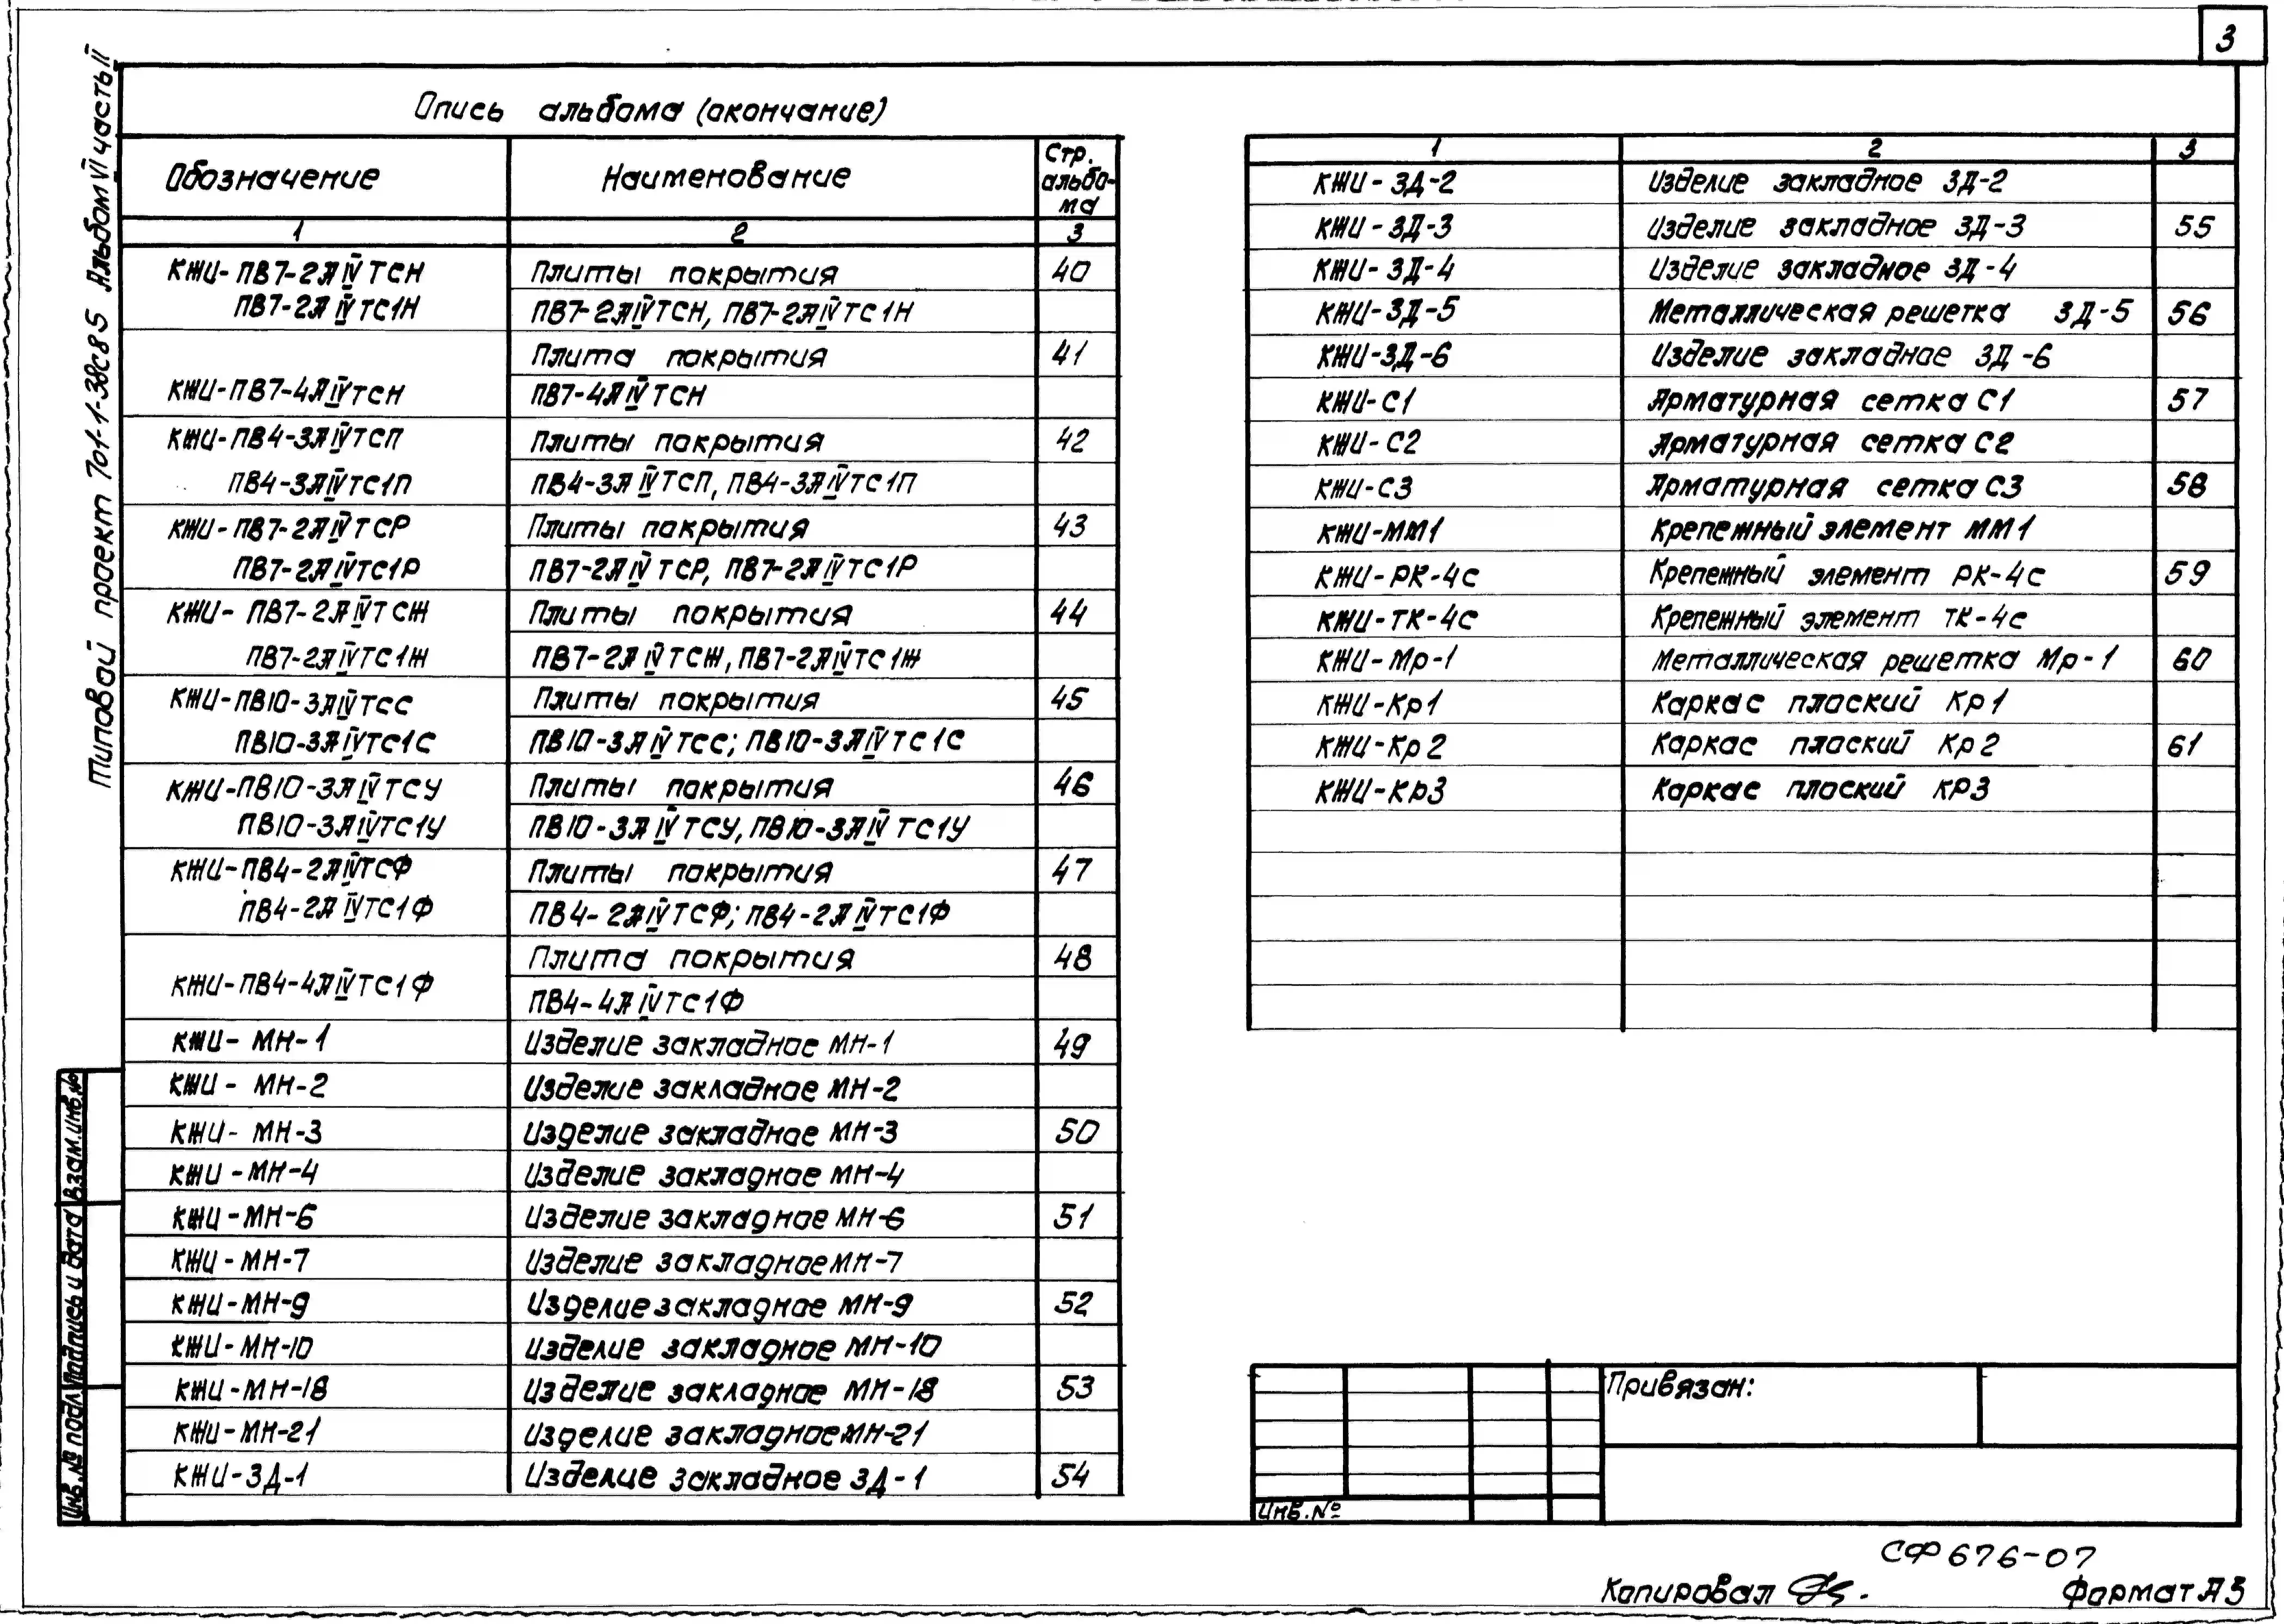 3
Типовой проект 701-1-38с85 Альбом VI часть II
Опись альбома (окончание)
Обозначение Наименование Стр. альбо-ма
1 2 3
КЖИ-ПВ7-2ЯIVТСН Плиты покрытия 40
ПВ7-2ЯIVТС1Н ПВ7-2ЯIVТСН, ПВ7-2ЯIVТС1Н
Плита покрытия 41
КЖИ-ПВ7-4ЯIVТСН ПВ7-4ЯIVТСН
КЖИ-ПВ4-3ЯIVТСП Плиты покрытия 42
ПВ4-3ЯIVТС1П ПВ4-3ЯIVТСП, ПВ4-3ЯIVТС1П
КЖИ-ПВ7-2ЯIVТСР Плиты покрытия 43
ПВ7-2ЯIVТС1Р ПВ7-2ЯIVТСР, ПВ7-2ЯIVТС1Р
КЖИ-ПВ7-2ЯIVТСЖ Плиты покрытия 44
ПВ7-2ЯIVТС1Ж ПВ7-2ЯIVТСЖ, ПВ7-2ЯIVТС1Ж
КЖИ-ПВ10-3ЯIVТСС Плиты покрытия 45
ПВ10-3ЯIVТС1С ПВ10-3ЯIVТСС; ПВ10-3ЯIVТС1С
КЖИ-ПВ10-3ЯIVТСУ Плиты покрытия 46
ПВ10-3ЯIVТС1У ПВ10-3ЯIVТСУ, ПВ10-3ЯIVТС1У
КЖИ-ПВ4-2ЯIVТСФ Плиты покрытия 47
ПВ4-2ЯIVТС1Ф ПВ4-2ЯIVТСФ; ПВ4-2ЯIVТС1Ф
Плита покрытия 48
КЖИ-ПВ4-4ЯIVТС1Ф ПВ4-4ЯIVТС1Ф
КЖИ-МН-1 Изделие закладное МН-1 49
КЖИ-МН-2 Изделие закладное МН-2
КЖИ-МН-3 Изделие закладное МН-3 50
КЖИ-МН-4 Изделие закладное МН-4
КЖИ-МН-6 Изделие закладное МН-6 51
КЖИ-МН-7 Изделие закладное МН-7
КЖИ-МН-9 Изделие закладное МН-9 52
КЖИ-МН-10 Изделие закладное МН-10
КЖИ-МН-18 Изделие закладное МН-18 53
КЖИ-МН-21 Изделие закладное МН-21
КЖИ-ЗД-1 Изделие закладное ЗД-1 54
1 2 3
КЖИ-ЗД-2 Изделие закладное ЗД-2
КЖИ-ЗД-3 Изделие закладное ЗД-3 55
КЖИ-ЗД-4 Изделие закладное ЗД-4
КЖИ-ЗД-5 Металлическая решетка ЗД-5 56
КЖИ-ЗД-6 Изделие закладное ЗД-6
КЖИ-С1 Арматурная сетка С1 57
КЖИ-С2 Арматурная сетка С2
КЖИ-С3 Арматурная сетка С3 58
КЖИ-ММ1 Крепежный элемент ММ1
КЖИ-РК-4с Крепежный элемент РК-4с 59
КЖИ-ТК-4с Крепежный элемент ТК-4с
КЖИ-Мр-1 Металлическая решетка Мр-1 60
КЖИ-Кр1 Каркас плоский Кр1
КЖИ-Кр2 Каркас плоский Кр2 61
КЖИ-Кр3 Каркас плоский КР3
Привязан:
Инв.№
Инв.№ подл. Подпись и дата Взам.инв.№
СФ676-07
Копировал
Формат А3